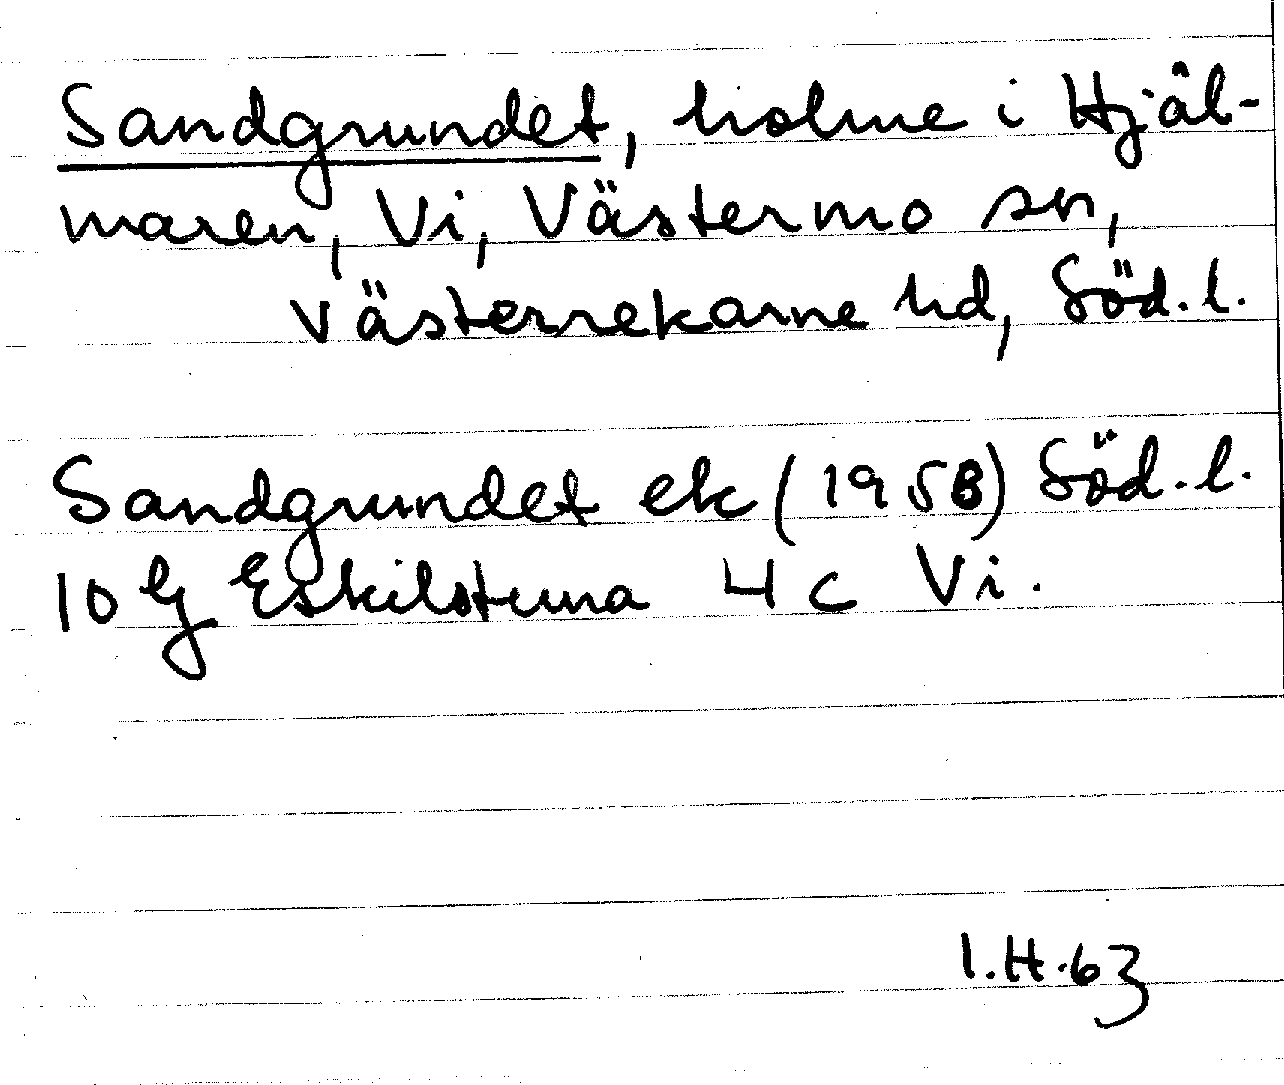 Sandgrundet, holme i Hjäl-
maren, Vi, Västermo sn,
Västerrekarne hd, Söd. l.
Sandgrundet ek (1958) Söd. l.
10 G Eskilstuna 4 c Vi.
I.H.63